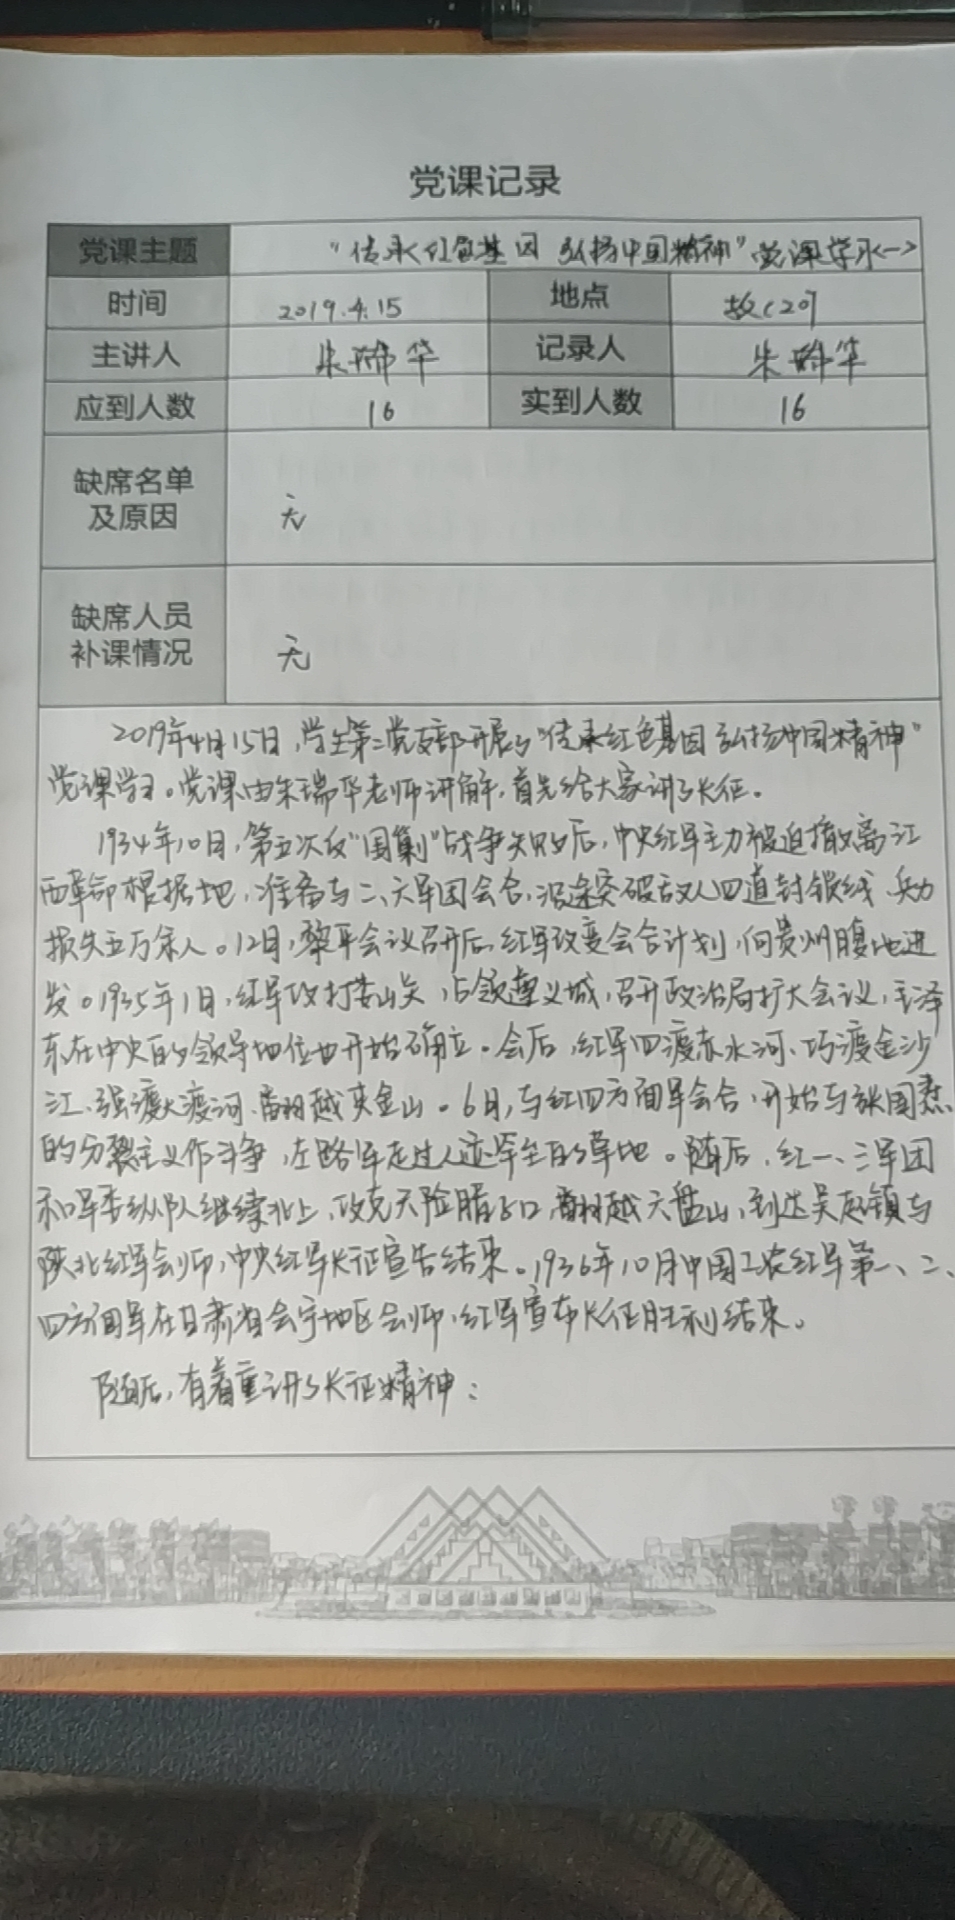 党课记录
党课主题 "传承红色基因 弘扬中国精神"党课学习<一>
时间 2019.4.15 地点 教C207
主讲人 朱瑞华 记录人 朱瑞华
应到人数 16 实到人数 16
缺席名单
及原因 无
缺席人员
补课情况 无
2019年4月15日,学生第二党支部开展了"传承红色基因 弘扬中国精神"
党课学习。党课由朱瑞华老师讲解,首先给大家讲了长征。
1934年10月,第五次反"围剿"战争失败后,中央红军主力被迫撤离江
西革命根据地,准备与二、六军团会合,沿途突破敌人四道封锁线,兵力
损失五万余人。12月,黎平会议召开后,红军改变会合计划,向贵州腹地进
发。1935年1月,红军攻打娄山关,占领遵义城,召开政治局扩大会议,毛泽
东在中央的领导地位也开始确立。会后,红军四渡赤水河、巧渡金沙
江、强渡大渡河、翻越夹金山。6月,与红四方面军会合,开始与张国焘
的分裂主义作斗争,左路军走过人迹罕至的草地。随后,红一、三军团
和军委纵队继续北上,攻克天险腊子口,翻越六盘山,到达吴起镇与
陕北红军会师,中央红军长征宣告结束。1936年10月中国工农红军第一、二、
四方面军在甘肃省会宁地区会师,红军宣布长征胜利结束。
随后,有着重讲了长征精神: